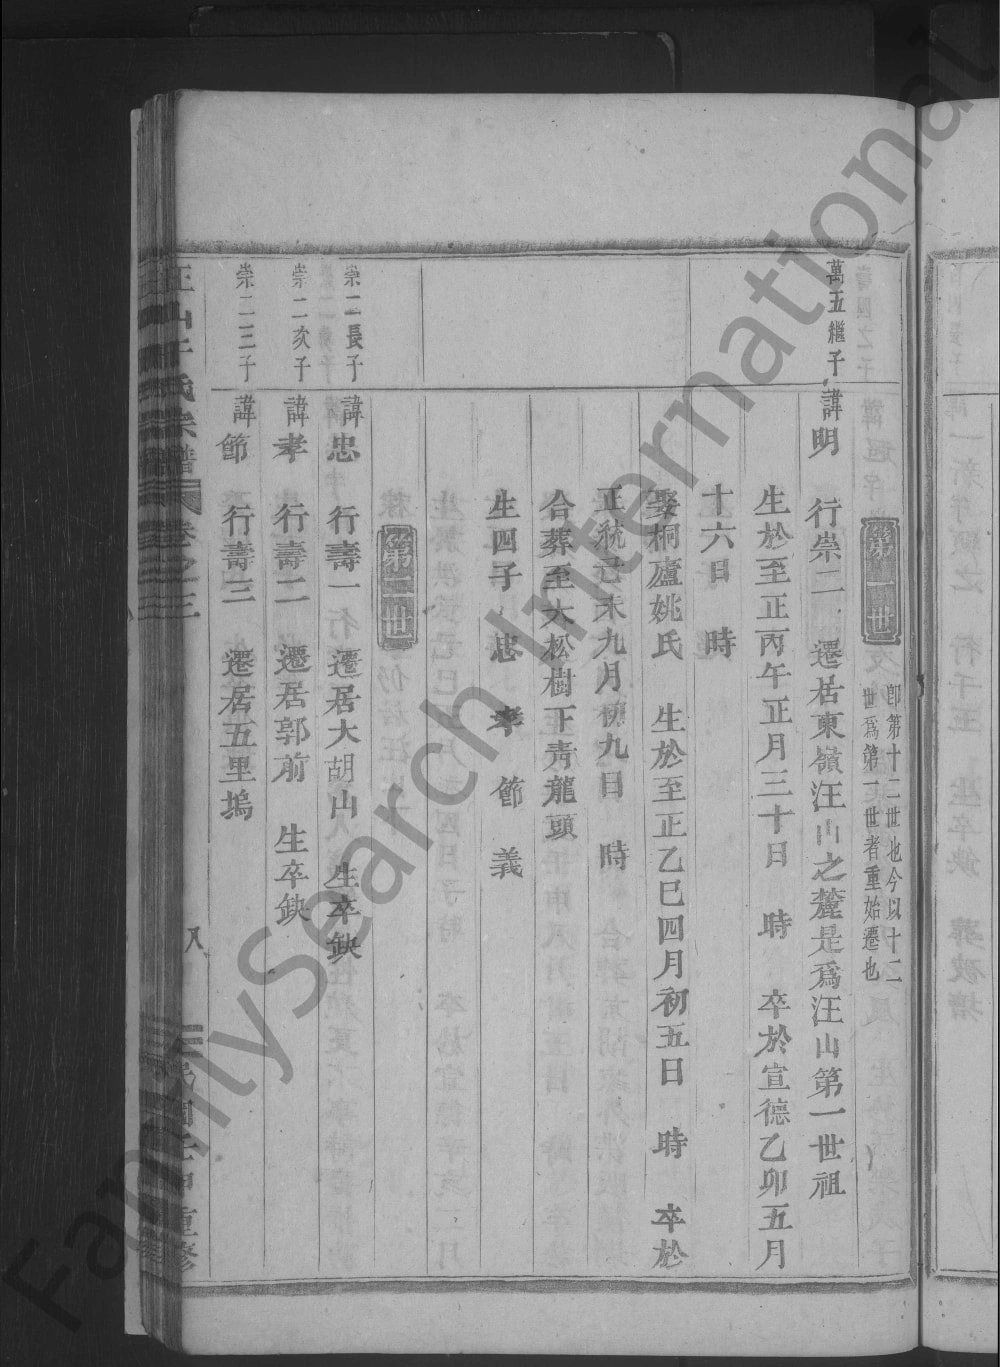 第一世
即第十二世也今以十二
世爲第一世者重始遷也
萬五繼子 諱明 行崇二 遷居東嶺汪山之麓是爲汪山第一世祖
生於至正丙午正月三十日 時 卒於宣德乙卯五月
十六日 時
娶桐廬姚氏 生於至正乙巳四月初五日 時 卒於
正統己未九月初九日 時
合葬至大松樹下靑龍頭
生四子 忠 孝 節 義
第二世
崇二長子 諱忠 行壽一 遷居大胡山 生卒缺
崇二次子 諱孝 行壽二 遷居郭前 生卒缺
崇二三子 諱節 行壽三 遷居五里塢
汪山于氏宗譜 卷之三 八 民國壬申重修
FamilySearch International